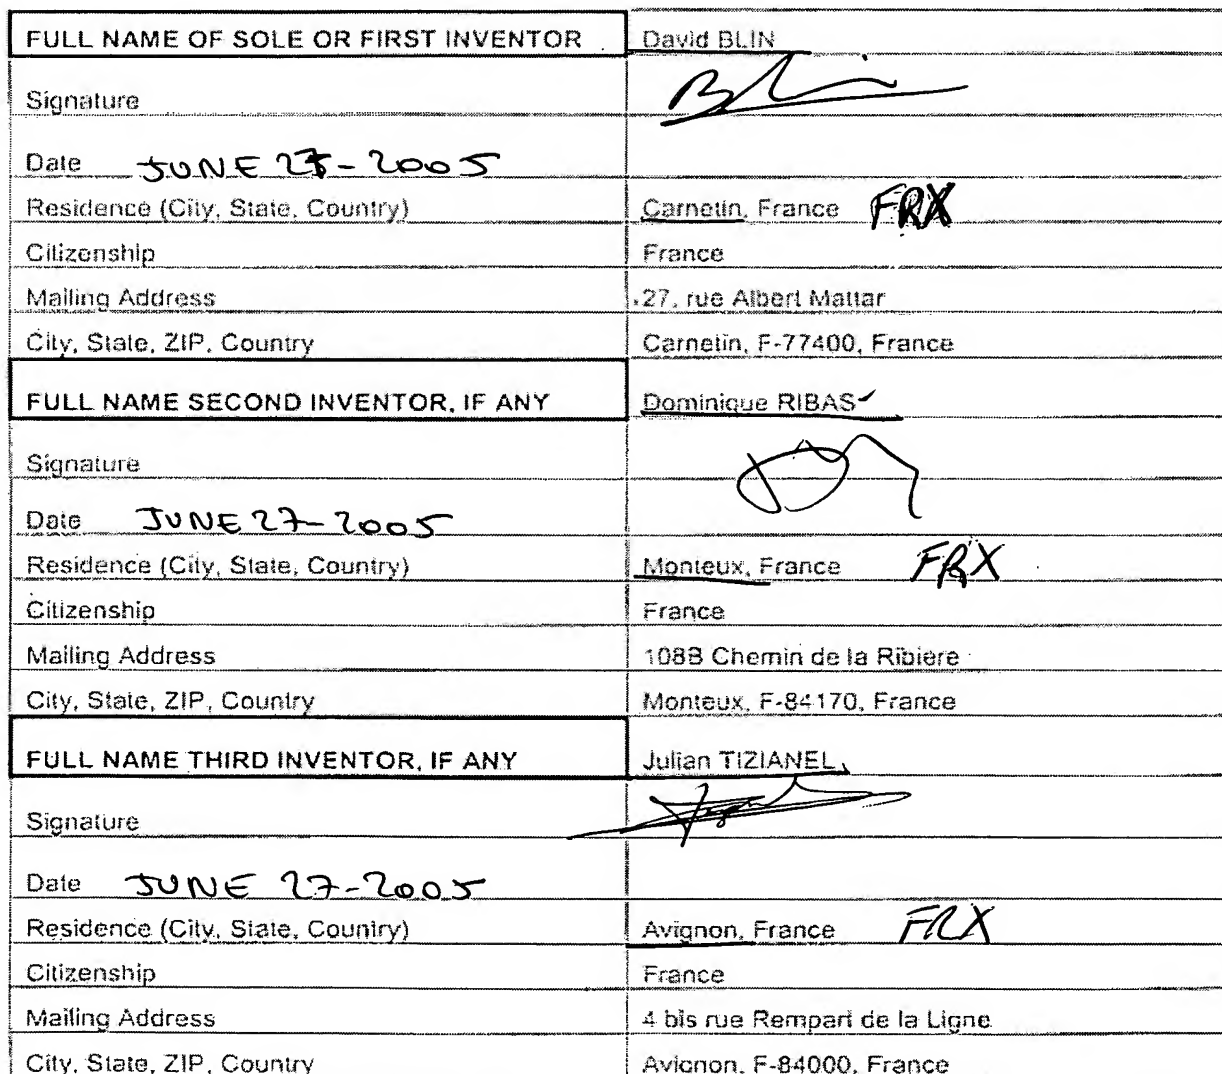 FULL NAME OF SOLE OR FIRST INVENTOR David BLIN
Signature
Date JUNE 27-2005
Residence (City, State, Country) Carnetin, France FRX
Citizenship France
Mailing Address 27, rue Albert Mattar
City, State, ZIP, Country Carnetin, F-77400, France
FULL NAME SECOND INVENTOR, IF ANY Dominique RIBAS
Signature
Date JUNE 27-2005
Residence (City, State, Country) Monteux, France FRX
Citizenship France
Mailing Address 108B Chemin de la Ribiere
City, State, ZIP, Country Monteux, F-84170, France
FULL NAME THIRD INVENTOR, IF ANY Julian TIZIANEL
Signature
Date JUNE 27-2005
Residence (City, State, Country) Avignon, France FRX
Citizenship France
Mailing Address 4 bis rue Rempart de la Ligne
City, State, ZIP, Country Avignon, F-84000, France